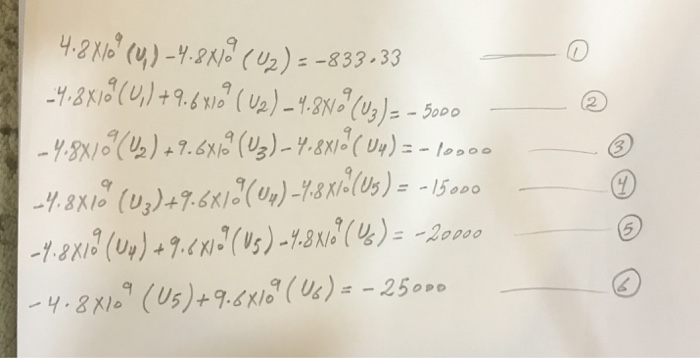 4.8×10⁹ (U₁) - 4.8×10⁹ (U₂) = -833.33 ——— ①
-4.8×10⁹ (U₁) + 9.6×10⁹ (U₂) - 4.8×10⁹ (U₃) = -5000 ——— ②
-4.8×10⁹ (U₂) + 9.6×10⁹ (U₃) - 4.8×10⁹ (U₄) = -10000 ——— ③
-4.8×10⁹ (U₃) + 9.6×10⁹ (U₄) - 4.8×10⁹ (U₅) = -15000 ——— ④
-4.8×10⁹ (U₄) + 9.6×10⁹ (U₅) - 4.8×10⁹ (U₆) = -20000 ——— ⑤
-4.8×10⁹ (U₅) + 9.6×10⁹ (U₆) = -25000 ——— ⑥